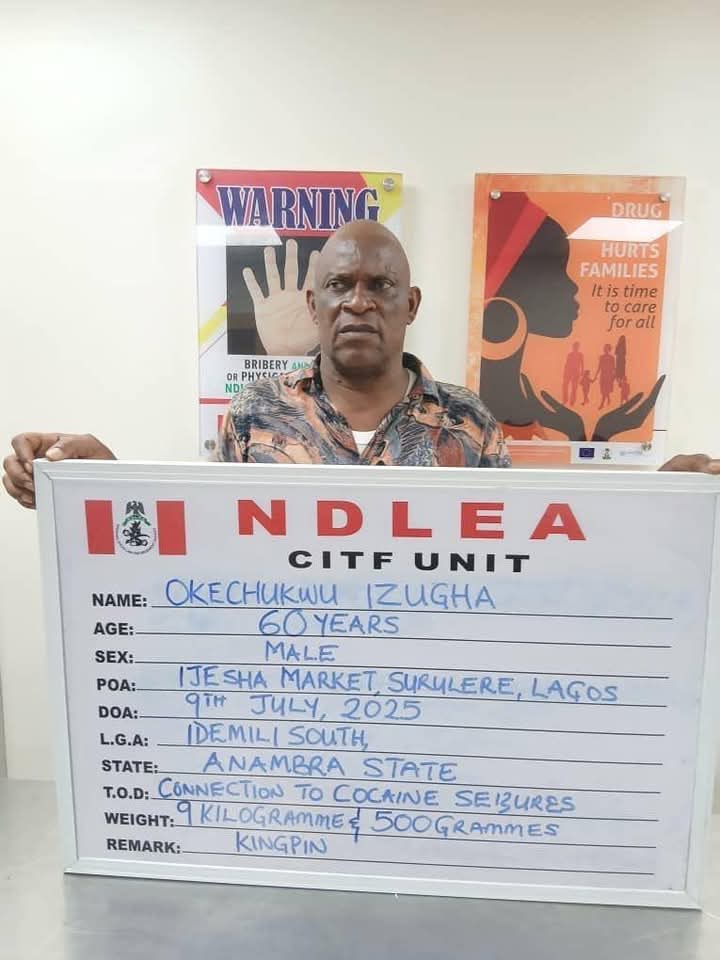 WARNING
BRIBERY AND
OR PHYSIC
DRUG
HURTS
FAMILIES
It is time
to care
for all
NDLEA
CITF UNIT
NAME: OKECHUKWU IZUGHA
AGE: 60 YEARS
SEX: MALE
POA: IJESHA MARKET, SURULERE, LAGOS
DOA: 9TH JULY, 2025
L.G.A: IDEMILI SOUTH,
STATE: ANAMBRA STATE
T.O.D: CONNECTION TO COCAINE SEIZURES
WEIGHT: 9 KILOGRAMME & 500 GRAMMES
REMARK: KINGPIN